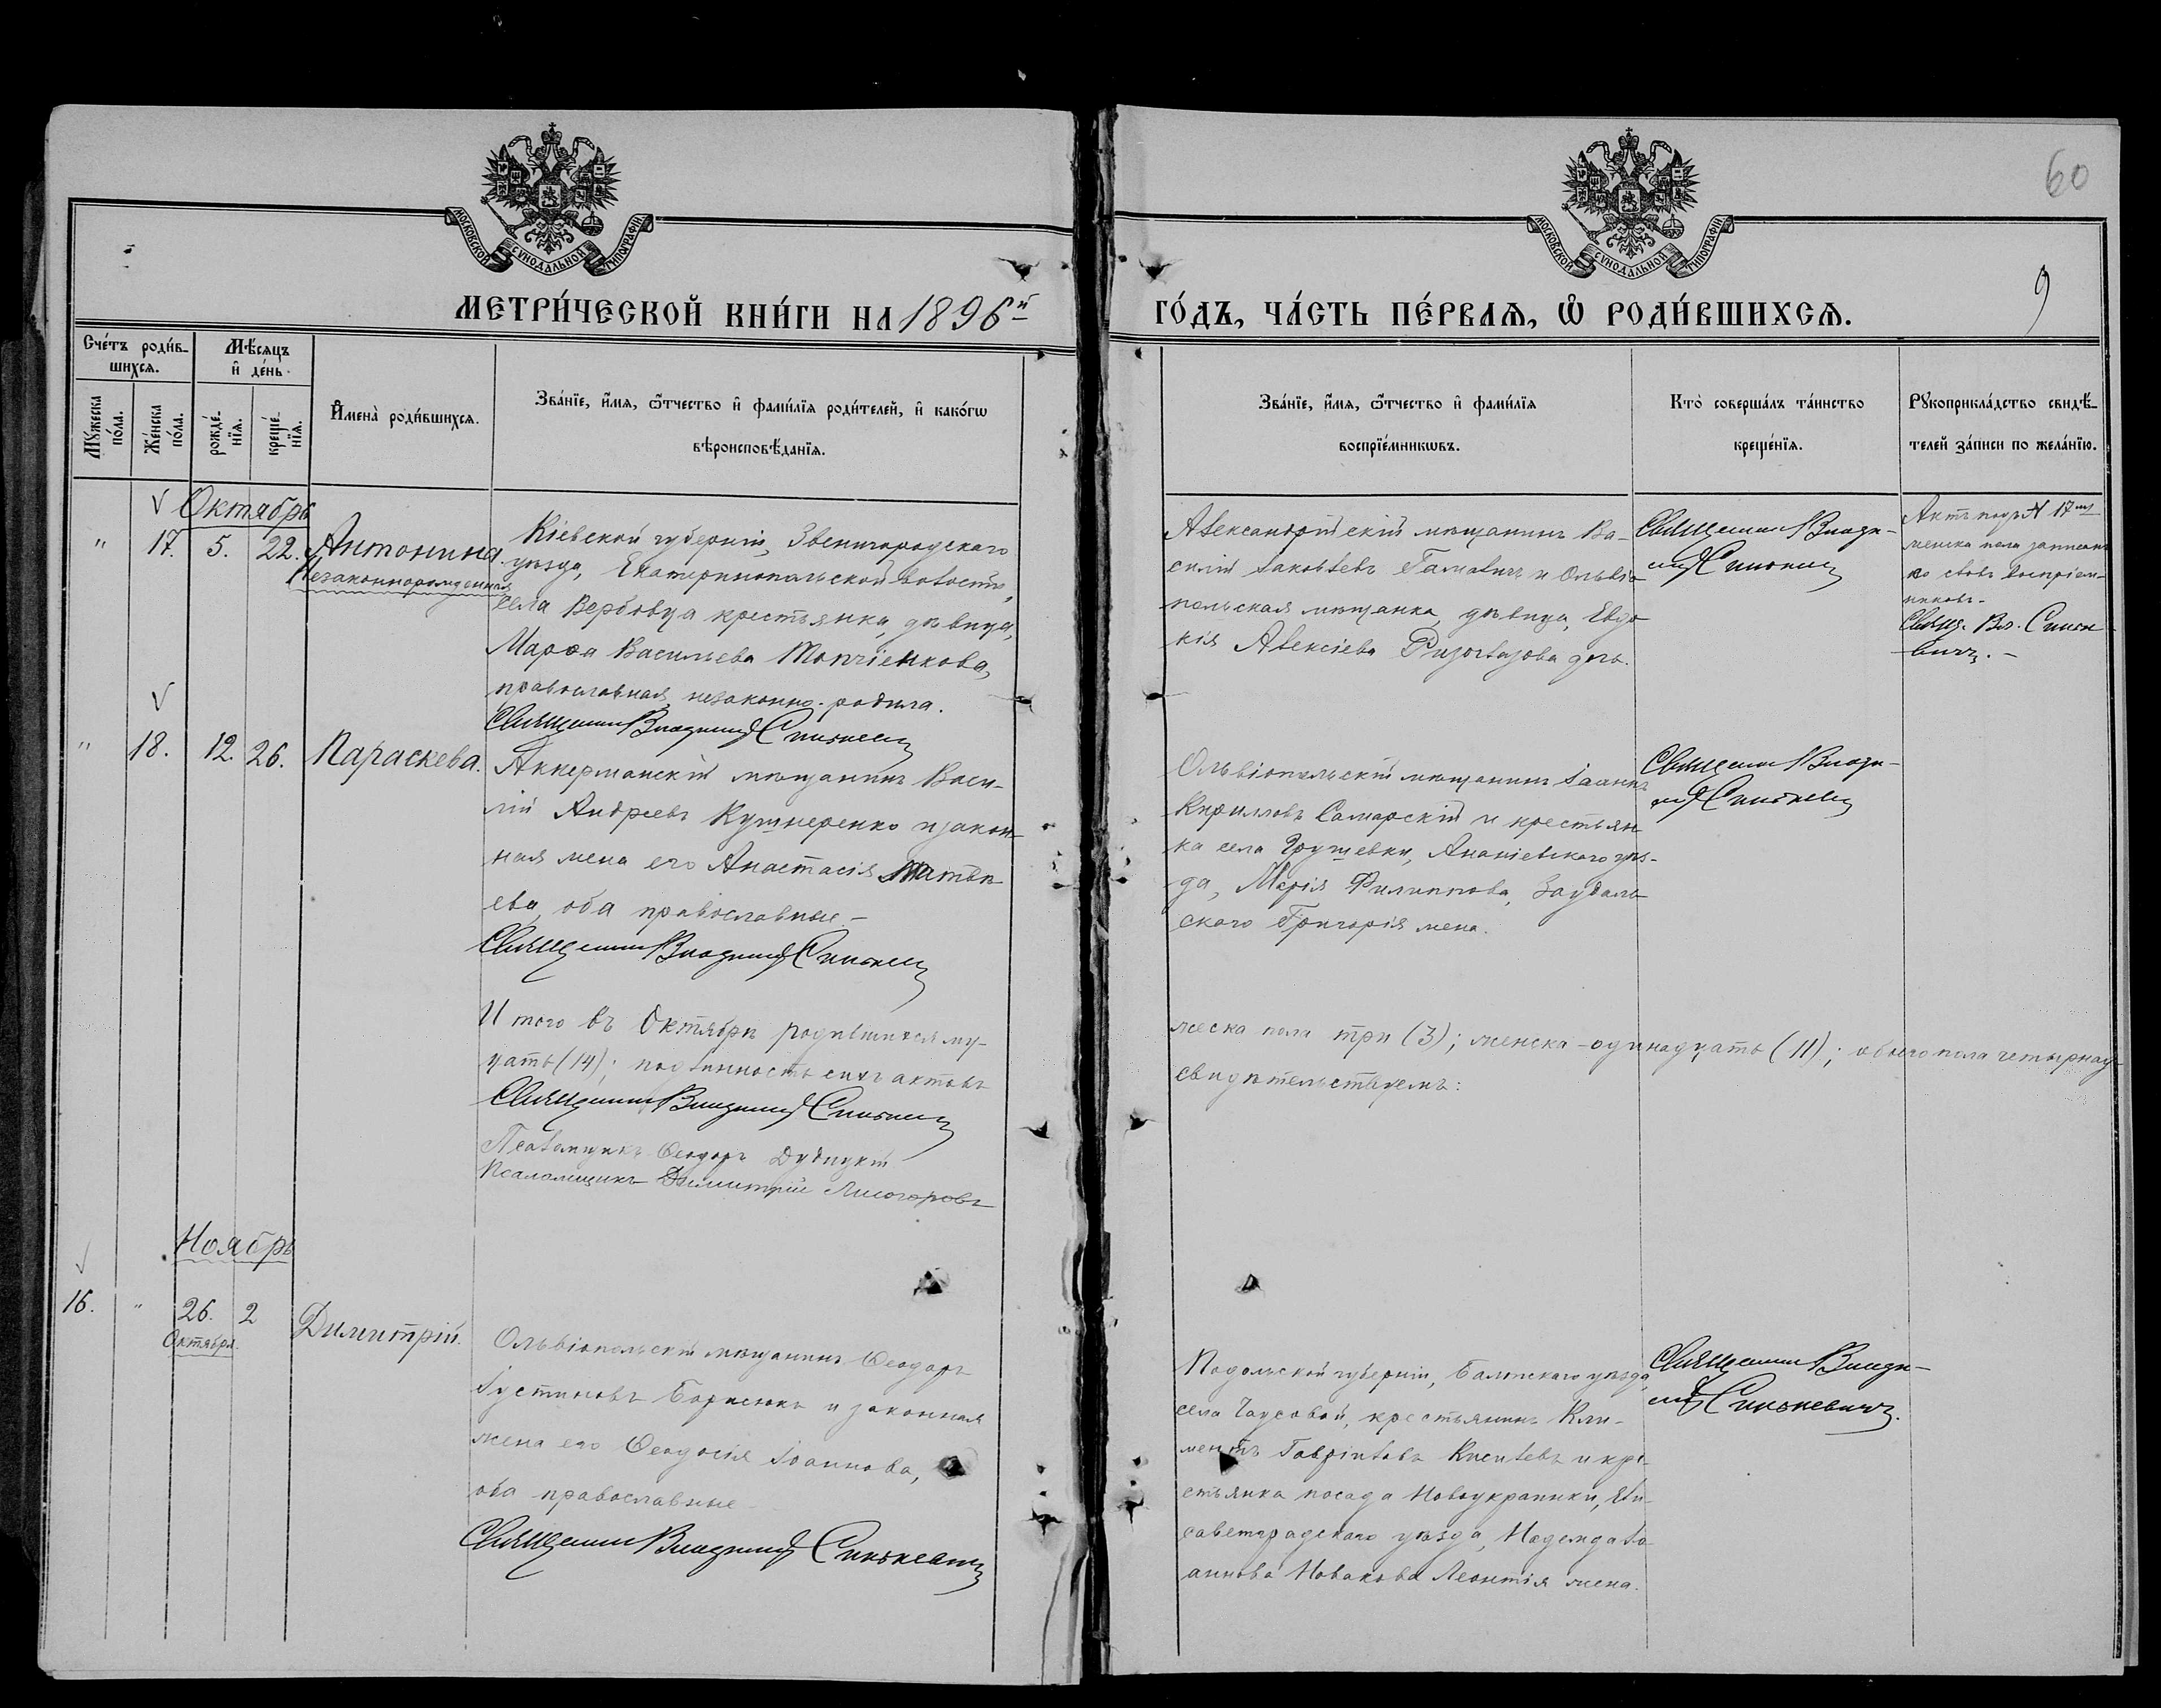 60
9
МОСКОВСКОЙ СѴНОДАЛЬНОЙ ТИПОГРАФІИ
МОСКОВСКОЙ СѴНОДАЛЬНОЙ ТИПОГРАФІИ
МЕТРИ́ЧЕСКОЙ КНИ́ГИ НА 1896й
ГО́ДЪ, ЧА́СТЬ ПЕ́РВАѦ, Ѡ РОДИ́ВШИХСѦ.
Сче́тъ роди́в-
шихсѧ.
Мѣ́сѧцъ
и҆ де́нь.
Мꙋ́жеска
по́ла.
Же́нска
по́ла.
рожде́-
нїѧ.
креще́-
нїѧ.
И҆мена̀ роди́вшихсѧ.
Зва́нїе, и҆́мѧ, ѻ҆́тчество и҆ фами́лїѧ роди́телей, и҆ како́гѡ
вѣроисповѣ́данїѧ.
Зва́нїе, и҆́мѧ, ѻ҆́тчество и҆ фами́лїѧ
воспрїе́мникѡвъ.
Кто̀ соверша́лъ та́инство
креще́нїѧ.
Рꙋкоприкла́дство свидѣ́-
телей за́писи по жела́нїю.
Октябрь
" 17. 5. 22. Антонина.
Незаконнорожденная
Кіевской губерніи, Звенигородскаго
уѣзда, Екатеринопольской волости,
села Вербовца крестьянка, дѣвица,
Марѳа Васильева Топчіенкова,
православная, незаконно родила.
Священникъ Владимиръ Синькевичъ
Александрійскій мѣщанинъ Ва-
силій Іаковлевъ и Ольвіо-
польская мѣщанка, дѣвица, Евдо-
кія Алексіева дочь.
Священникъ Влади-
миръ Синькевичъ
Актъ подъ № 17мъ
женска пола записанъ
со словъ воспріем-
никовъ.
Свящ. Вл. Синьке-
вичъ. –
" 18. 12. 26. Параскева.
Аккерманскій мѣщанинъ Васи-
лій Андреевъ Кушнеренко и закон-
ная жена его Анастасія Матѳѣ-
ева, оба православные –
Священникъ Владимиръ Синькевичъ
Ольвіопольскій мѣщанинъ Іоаннъ
Кирилловъ Самарскій и крестьян-
ка села Грушевки, Ананіевскаго уѣз-
да, Марія Филиппова, Заудаль-
ского Григорія жена.
Священникъ Влади-
миръ Синькевичъ
Итого въ Октябрѣ родившихся му-
жеска пола три (3); женска – одинадцать (11); обоего пола четырнад-
цать (14); подлинность сихъ актовъ
свидѣтельствуемъ:
Священникъ Владимиръ Синькевичъ
Псаломщикъ Ѳеодоръ Дубицкій
Псаломщикъ Димитрій Лисогоровъ
Ноябрь
16. " 26. 2 Димитрій.
Октября.
Ольвіопольскій мѣщанинъ Ѳеодоръ
Іустиновъ Борисюкъ и законная
жена его Ѳеодосія Іоаннова,
оба православные –
Священникъ Владимиръ Синькевичъ
Подольской губерніи, Балтскаго уѣзда,
села Чаусовой, крестьянинъ Кли-
ментъ Гавріиловъ Киселевъ и кре-
стьянка посада Новоукраинки, Ели-
саветградскаго уѣзда, Надежда Іо-
аннова Новакова Леонтія жена.
Священникъ Влади-
миръ Синькевичъ.